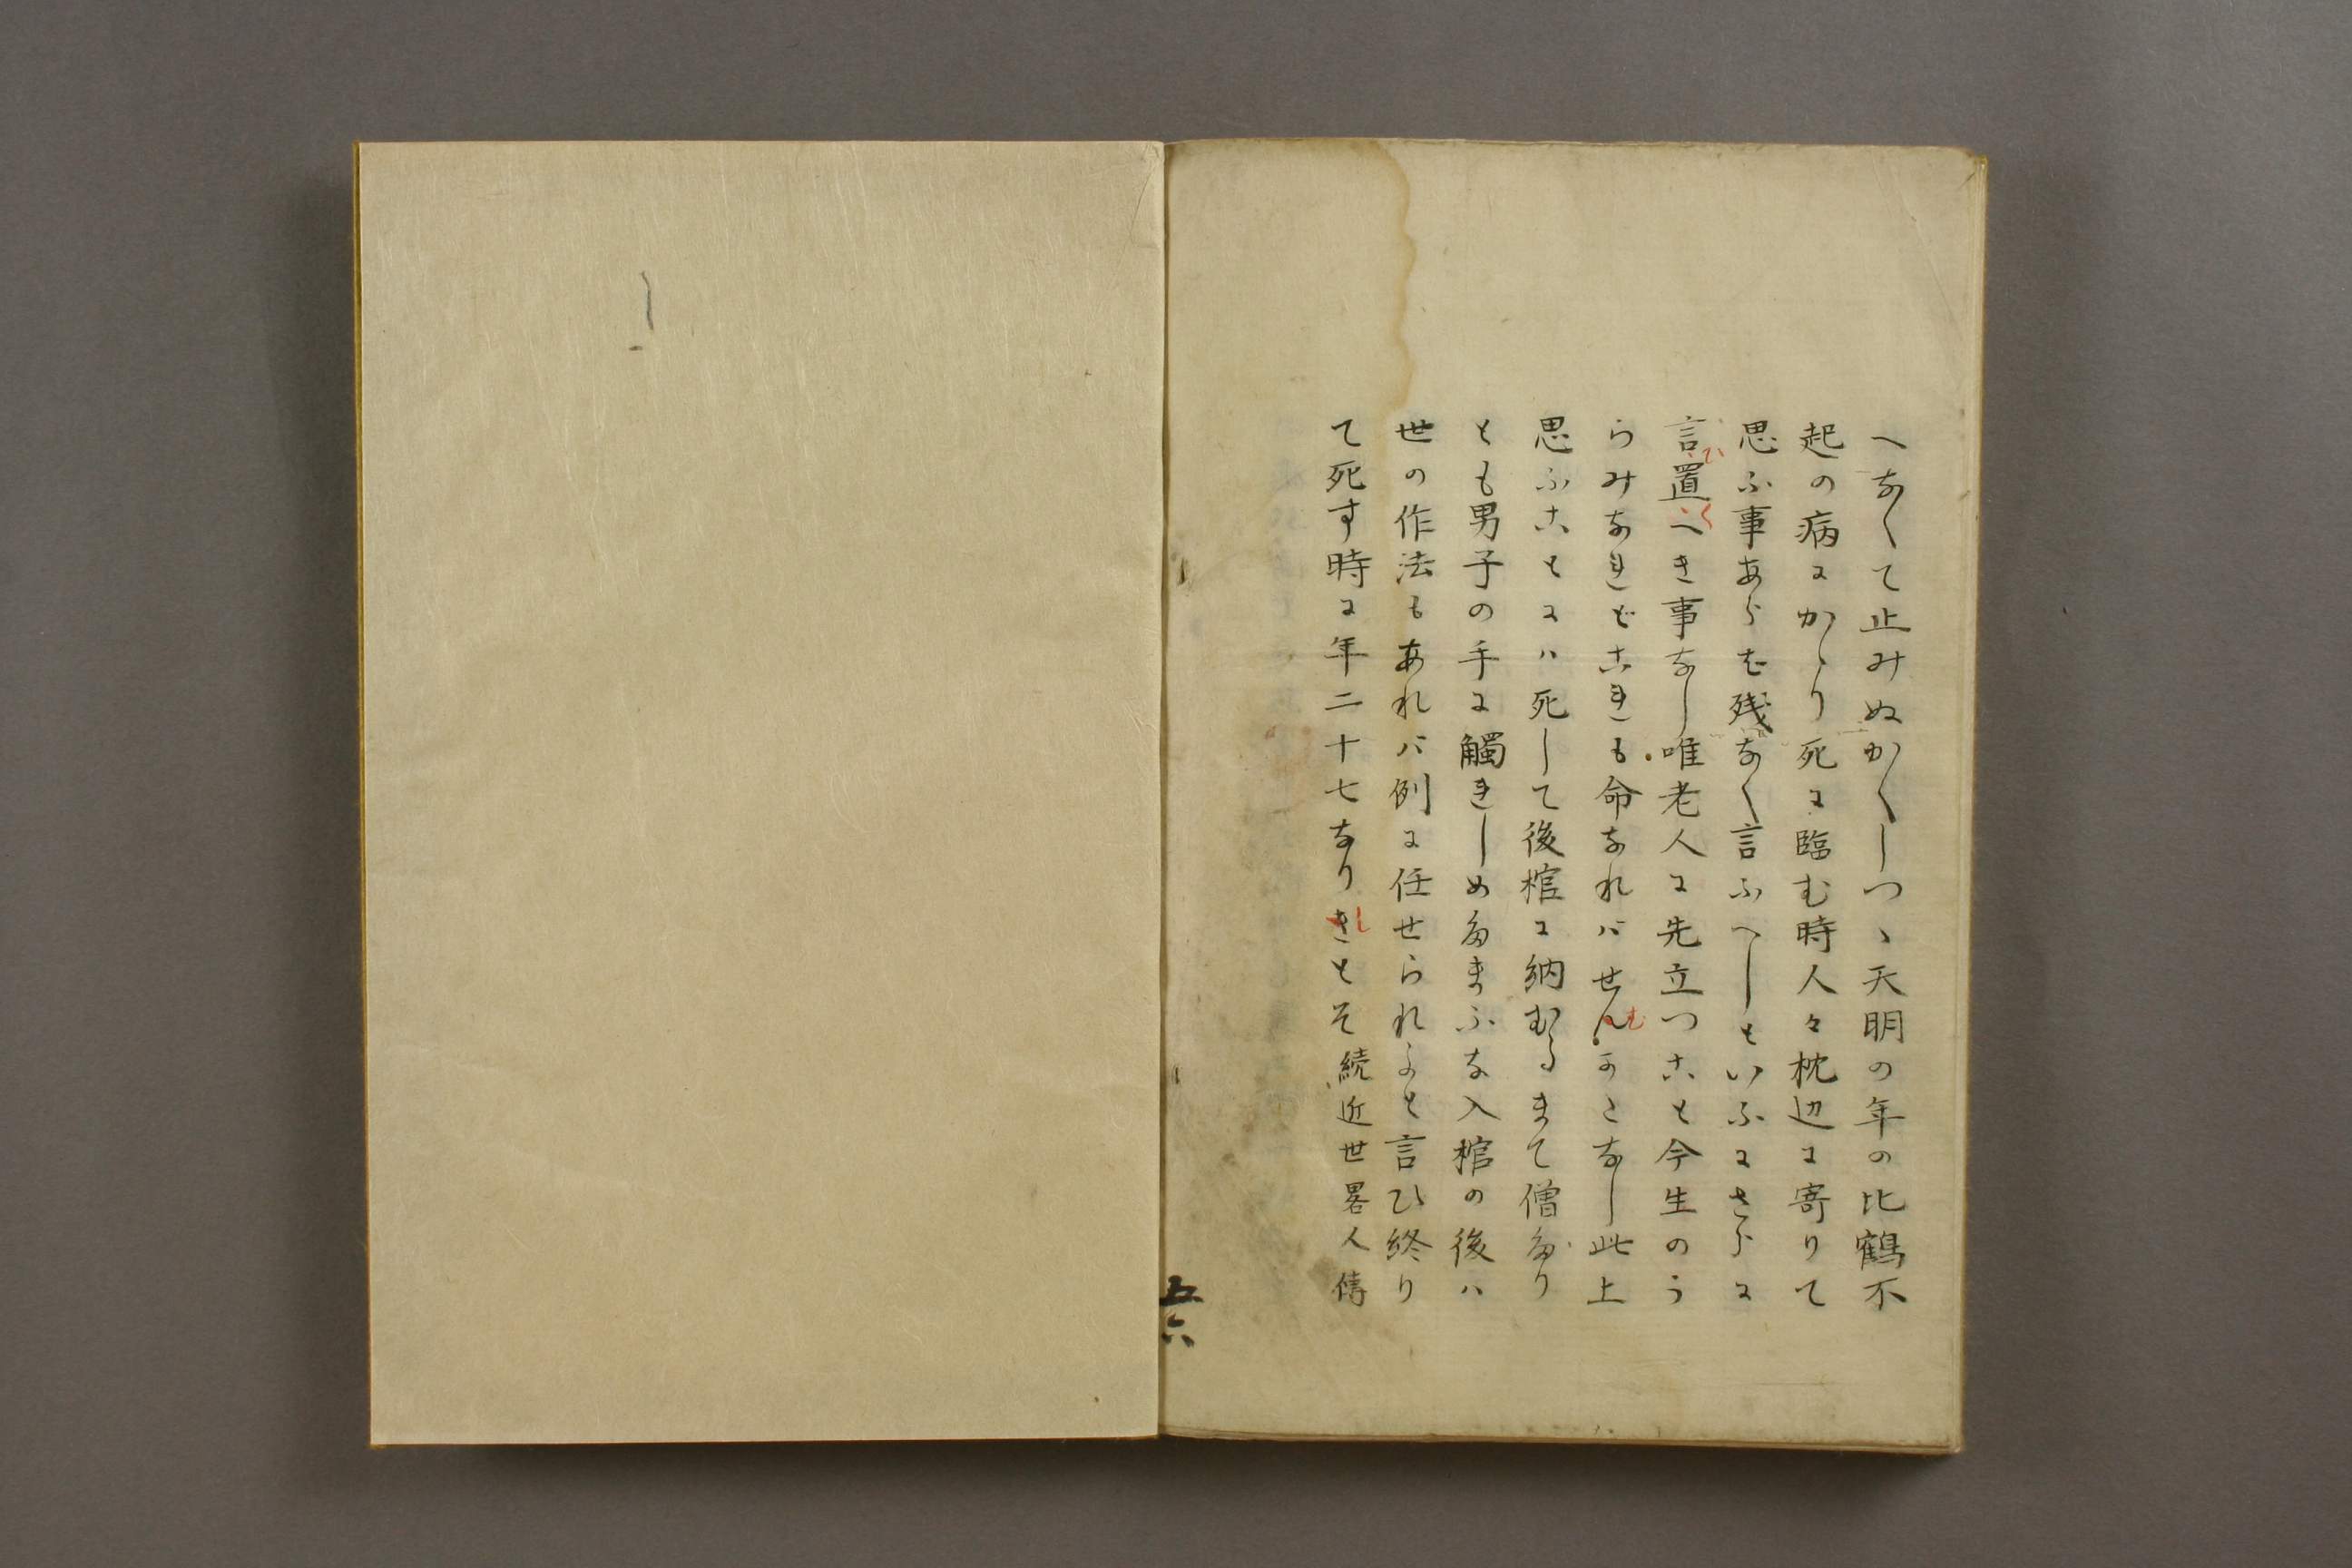 へなくて止みぬかくしつゝ天明の年の比鶴不
起の病にかゝり死に臨む時人々枕辺に寄りて
思ふ事あらむ残なく言ふへしといふにさらに
言ひ置くへき事なし唯老人に先立つこと今生のう
らみなれどこれも命なればせんむかたなし此上
思ふことには死して後棺に納むるまて僧たり
とも男子の手に觸れしめたまふな入棺の後は
世の作法もあれば例に任せられよと言ひ終り
て死す時に年二十七なりきしとそ続近世畧人傳
五六